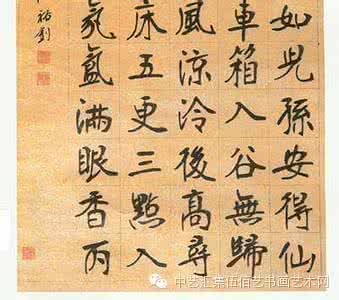 如兒孫安得仙
車箱入谷無歸
風涼冷後高尋
床五更三點入
氛氳滿眼香丙
中艺汇集伍佰艺书画艺术网